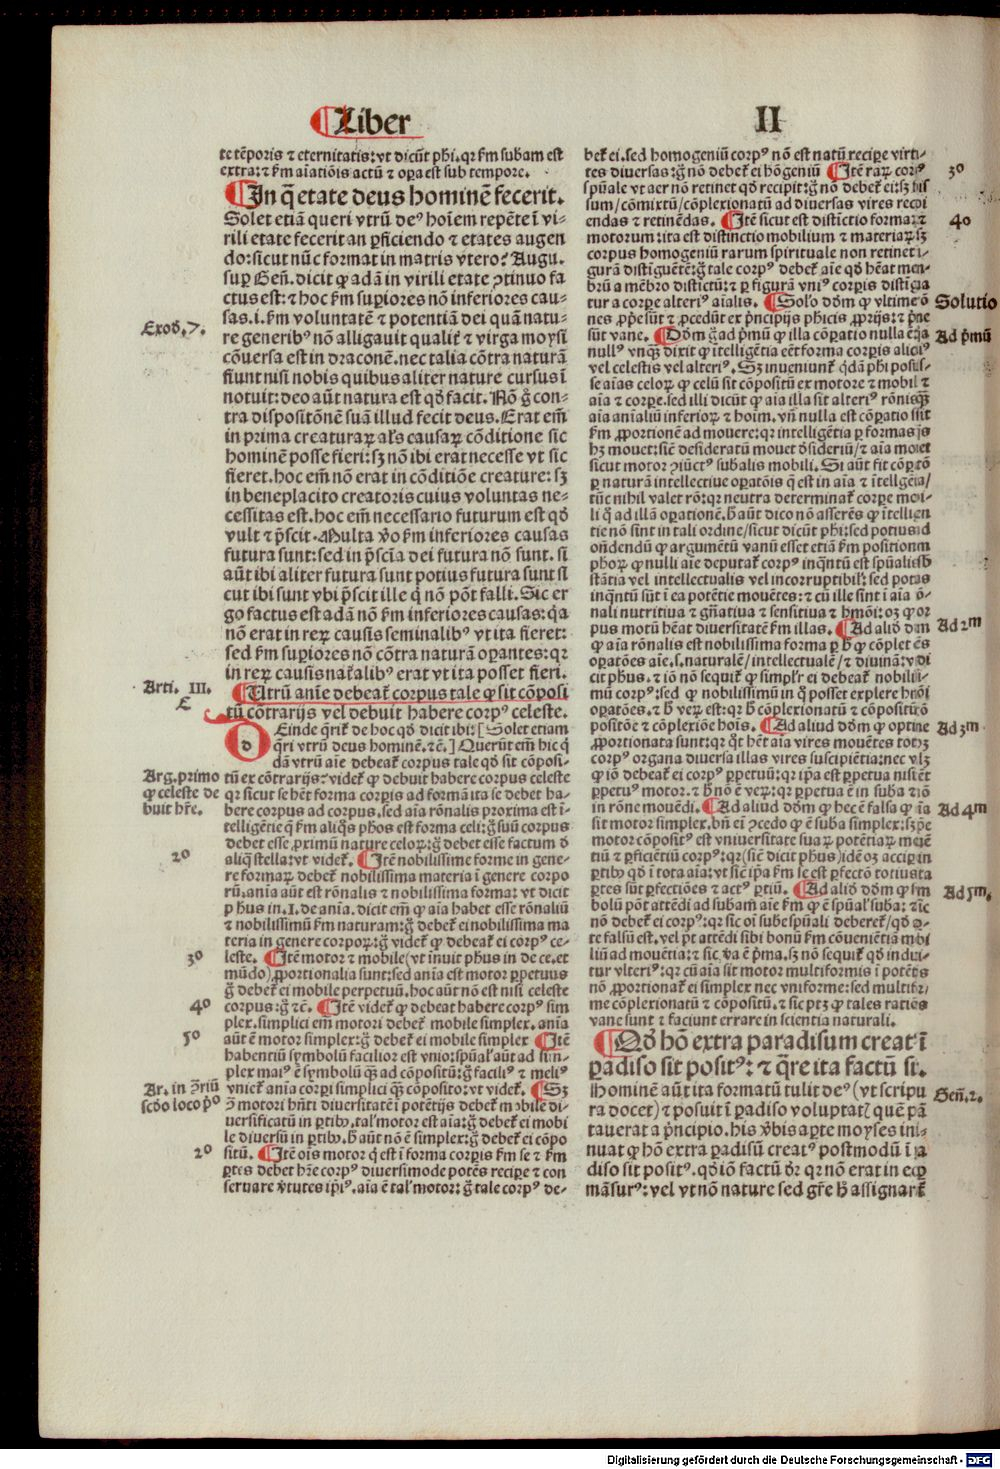 ¶Liber
II
te tēporis ⁊ eternitatis: vt dicūt phi. qr km subam est
extra: ⁊ km aīatiōis actū ⁊ opa est sub tempore.
¶In q̄ etate deus hominē fecerit.
Solet etiā queri vtrū deꝰ hoīem repēte ī vi⸗
rili etate fecerit an ꝑficiendo ⁊ etates augen
do: sicut nūc format in matris vtero? Augu.
suꝑ Geñ. dicit ꝙ adā in virili etate ꝯtinuo fa
ctus est: ⁊ hoc km suꝑiores nō inferiores cau⸗
sas. i. km voluntatē ⁊ potentiā dei quā natu⸗
Exod. 7.
re generibꝰ nō alligauit qualit̄ ⁊ virga moysi
cōuersa est in draconē. nec talia cōtra naturā
fiunt nisi nobis quibus aliter nature cursus ī
notuit: deo aūt natura est qd facit. Nō g̊ con⸗
tra dispositōnē suā illud fecit deus. Erat em̄
in prima creaturaꝝ als causaꝝ cōditione sic
hominē posse fieri: sꝫ nō ibi erat necesse vt sic
fieret. hoc em̄ nō erat in cōditiōe creature: sꝫ
in beneplacito creatoris cuius voluntas ne⸗
cessitas est. hoc em̄ necessario futurum est qd
vult ⁊ p̄scit. Multa v̊o km inferiores causas
futura sunt: sed in p̄scīa dei futura nō sunt. si
aūt ibi aliter futura sunt potius futura sunt si
cut ibi sunt vbi p̄scit ille q̇ nō pōt falli. Sic er
go factus est adā nō km inferiores causas: q̇a
nō erat in reꝝ causis seminalibꝰ vt ita fieret:
sed km suꝑiores nō cōtra naturā oꝑantes: qr
in reꝝ causis nat̄alibꝰ erat vt ita posset fieri.
Arti. III.
¶Utrū anīe debeat̄ corpus tale ꝙ sit cōposi
E
tū cōtrarijs vel debuit habere corpꝰ celeste.
Deinde q̄rit̄ de hoc qd dicit ibi: [Solet etiam
q̄ri vtrū deus hominē. ⁊c̄.] Querūt em̄ hic q̇
dā vtrū aīe debeat̄ corpus tale qd sit cōposi⸗
Arg. primo
ꝙ celeste de
buit hr̄e.
tū ex cōtrarijs? videt̄ ꝙ debuit habere corpus celeste
qr sicut se hēt forma corꝑis ad formā ita se debet ha⸗
bere corpus ad corpus. sed aīa rōnalis proxima est ī⸗
telligētie q̄ km aliq̄s phos est forma celi: g̊ suū corpus
debet esse ꝓximū nature celoꝝ: g̊ debet esse factum d
20
aliq̄ stella: vt videt̄. ¶Itē nobilissime forme in gene⸗
re formaꝝ debet̄ nobilissima materia ī genere corpo
rū. anīa aūt est rōnalis ⁊ nobilissima forma: vt dicit
p hus in. I. de anīa. dicit em̄ ꝙ aīa habet esse rōnaliū
⁊ nobilissimū km naturam: g̊ debet̄ ei nobilissima ma
teria in genere corpoꝝ: g̊ videt̄ ꝙ debeat̄ ei corpꝰ ce⸗
30
leste. ¶Itē motor ⁊ mobile (vt inuit phus in de ce. et
mūdo) ꝓportionalia sunt: sed anīa est motor ꝑpetuus
g̊ debet̄ ei mobile perpetuū. hoc aūt nō est nisi celeste
40
corpus: g̊ ⁊c̄. ¶Itē videt̄ ꝙ debeat habere corpꝰ sim
plex. simplici em̄ motori debet̄ mobile simplex. anīa
50
aūt ē motor simplex: g̊ debet̄ ei mobile simplex ¶Itē
habentiū symbolū facilior est vnio: spūal aūt ad sim⸗
plex maiꝰ ē symbolū q̄ꝫ ad cōpositū: g̊ faciliꝰ ⁊ meliꝰ
Ar. in ꝯriū
scdo loco pº
vnict̄ anīa corꝑi simplici q̄ꝫ cōposito: vt videt̄. ¶Sꝫ
ꝯ motori hn̄ti diuersitatē ī potētijs debet̄ mobile di⸗
uersificatū in ꝑtibꝫ. tal motor est aīa: g̊ debet̄ ei mobi
le diuersū in ꝑtibꝫ. h̄ aūt nō ē simplex: g̊ debet̄ ei cōpo
20
situ. ¶Itē oīs motor q̇ est ī forma corꝑis km se ⁊ km
ꝑtes debet hr̄e corpꝰ diuersimode potēs reciꝑe ⁊ con
seruare v̇tutes ipiꝰ. aīa ē tal motor: g̊ tale corpꝰ de⸗
bet̄ ei. sed homogeniū corpꝰ nō est natū reciꝑe virtu⸗
30
tes diuersas: g̊ nō debet̄ ei hōgeniū ¶Itē raꝝ corpꝰ
spūale vt aer nō retinet qd recipit: g̊ nō debet̄ ei: sꝫ his
sum/ cōmixtū/ cōplexionatū ad diuersas vires recipi
40
endas ⁊ retinēdas. ¶Itē sicut est distīctio formaꝝ ⁊
motorum: ita est distinctio mobilium ⁊ materiaꝝ: sꝫ
corpus homogeniū rarum spirituale non retinet fi
gurā distīguētē: g̊ tale corpꝰ debet̄ aīe qd hēat mem⸗
brū a mēbro distīctū: ⁊ ꝑ figurā vniꝰ corꝑis distīgua
Solutio
tur a corꝑe alteriꝰ aīalis. ¶Solo ddm ꝙ vltime rō
nes ꝓpe sūt ⁊ ꝓcedūt ex p̄ncipijs phicis ꝓprijs: ⁊ p̄me
Ad p̄mū
sūt vane. ¶Ddm g̊ ad p̄mū ꝙ illa cōꝑatio nulla ē: q̇a
nullꝰ vnq̄ꝫ dixit ꝙ ītelligētia eēt forma corꝑis aliciꝰ
vel celestis vel alteriꝰ. Sꝫ inueniunt̄ q̇dā phi posuis⸗
se aīas celoꝝ ꝙ celū sit cōpositū ex motore ⁊ mobil ⁊
aīa ⁊ corꝑe. sed illi dicūt ꝙ aīa illa sit alteriꝰ rōnis q̄ꝫ
aīa anīaliū inferioꝝ ⁊ hoīm. vn̄ nulla est cōꝑatio nisi
km ꝓportionē ad mouere: qr intelligētia ꝑ formas q̄s
hꝫ mouet: sic̄ desideratū mouet dsideriū/ ⁊ aīa mouet
sicut motor ꝯiūctꝰ subalis mobili. Si aūt fit cōꝑatō
ꝑ naturā intellectiue oꝑatōis q̄ est in aīa ⁊ ītelligētia/
tūc nihil valet rō: qr neutra determinat̄ corꝑe mobi⸗
li q̇ ad illā oꝑationē. h̄ aūt dico nō asserēs ꝙ ītelligen
tie nō sint in tali ordine/ sicut dicūt phi: sed potius ad
oñdendū ꝙ argumētū vanū esset etiā km positionem
phoꝝ ꝙ nulli aīe deputat̄ corpꝰ inq̄ntū est spūalis sb
stātia vel intellectualis vel incorruptibil: sed potius
inq̄ntū sūt ī ea potētie mouētes: ⁊ cū ille sint ī aīa rō⸗
nali nutritiua ⁊ gn̄atiua ⁊ sensitiua ⁊ hmōi: oꝫ ꝙ cor
Ad 2m
pus motū hēat diuersitatē km illas. ¶Ad aliud ddm
ꝙ aīa rōnalis est nobilissima forma ꝑ h̄ ꝙ cōplet ēs
oꝑatōes aīe. s. naturale/ intellectuale/ ⁊ diuinā: vt di
cit phus. ⁊ iō nō sequit̄ ꝙ simplr ei debeat̄ nobilissi⸗
mū corpꝰ: sed ꝙ nobilissimū in q̊ posset explere hmōi
oꝑatōes. ⁊ h̄ veꝝ est: qr h̄ cōplexionatū ⁊ cōpositū rō
Ad 3m.
positōe ⁊ cōplexiōe hoīs. ¶Ad aliud ddm ꝙ optime
ꝓportionata sunt: qr q̄t hēt aīa vires mouētes totꝫ
corpꝰ organa diuersa illas vires suscipiētia: nec vlꝫ
ꝙ iō debeat̄ ei corpꝰ ꝑpetuū: qr ipa est ꝑpetua nisi ēt
ꝑpetuꝰ motor. ⁊ h̄ nō ē veꝝ: qr ꝑpetua ē in suba ⁊ nō
Ad 4m
in rōne mouēdi. ¶Ad aliud ddm ꝙ hec ē falsa ꝙ aīa
sit motor simplex. bn̄ ei ꝯcedo ꝙ ē suba simplex: sꝫ ꝓpe
motor cōpositꝰ est vniuersitate suaꝝ potētiaꝝ mouē
tiū ⁊ ꝑficiētiū corpꝰ: qr (sic̄ dicit phus) idē oꝫ accipi in
ꝑtibꝫ qd ī tota aīa: vt sic̄ ipa km se est ꝑfectō totius ita
Ad 5m.
ꝑtes sūt ꝑfectiōes ⁊ actꝰ ꝑtiū. ¶Ad aliud ddm ꝙ sym
bolū pōt attēdi ad subam aīe km ꝙ ē spūal suba: ⁊ sic
nō debet̄ ei corpꝰ: qr sic oī sube spūali deberet̄/ qd a⸗
te falsū est. vel pōt attēdi sibi bonū km cōuenientiā mobi
liū ad mouētia: ⁊ sic va ē p̄ma. sꝫ nō sequit̄ qd indui⸗
tur vlteriꝰ: qr cū aīa sit motor multiformis ī potētijs
nō ꝓportionat̄ ei simplex nec vniforme: sed multifor⸗
me cōplexionatū ⁊ cōpositū. ⁊ sic ptꝫ ꝙ tales ratiōes
vane sunt ⁊ faciunt errare in scientia naturali.
¶Qd hō extra paradisum creatꝰ ī
ꝑadiso sit positꝰ: ⁊ q̄re ita factū sit.
Geñ. 2.
Hominē aūt ita formatū tulit deꝰ (vt scriptu
ra docet) ⁊ posuit ī ꝑadiso voluptatꝭ quē plā
tauerat a p̄ncipio. his v̇bis aꝑte moyses insi⸗
nuat ꝙ hō extra ꝑadisū creatꝰ postmodū ī ꝑa
diso sit positꝰ. qd iō factū dr̄ qr nō erat in eo ꝑ
māsurꝰ: vel vt nō nature sed gr̄e h̄ assignaret̄
Digitalisierung gefördert durch die Deutsche Forschungsgemeinschaft - DFG